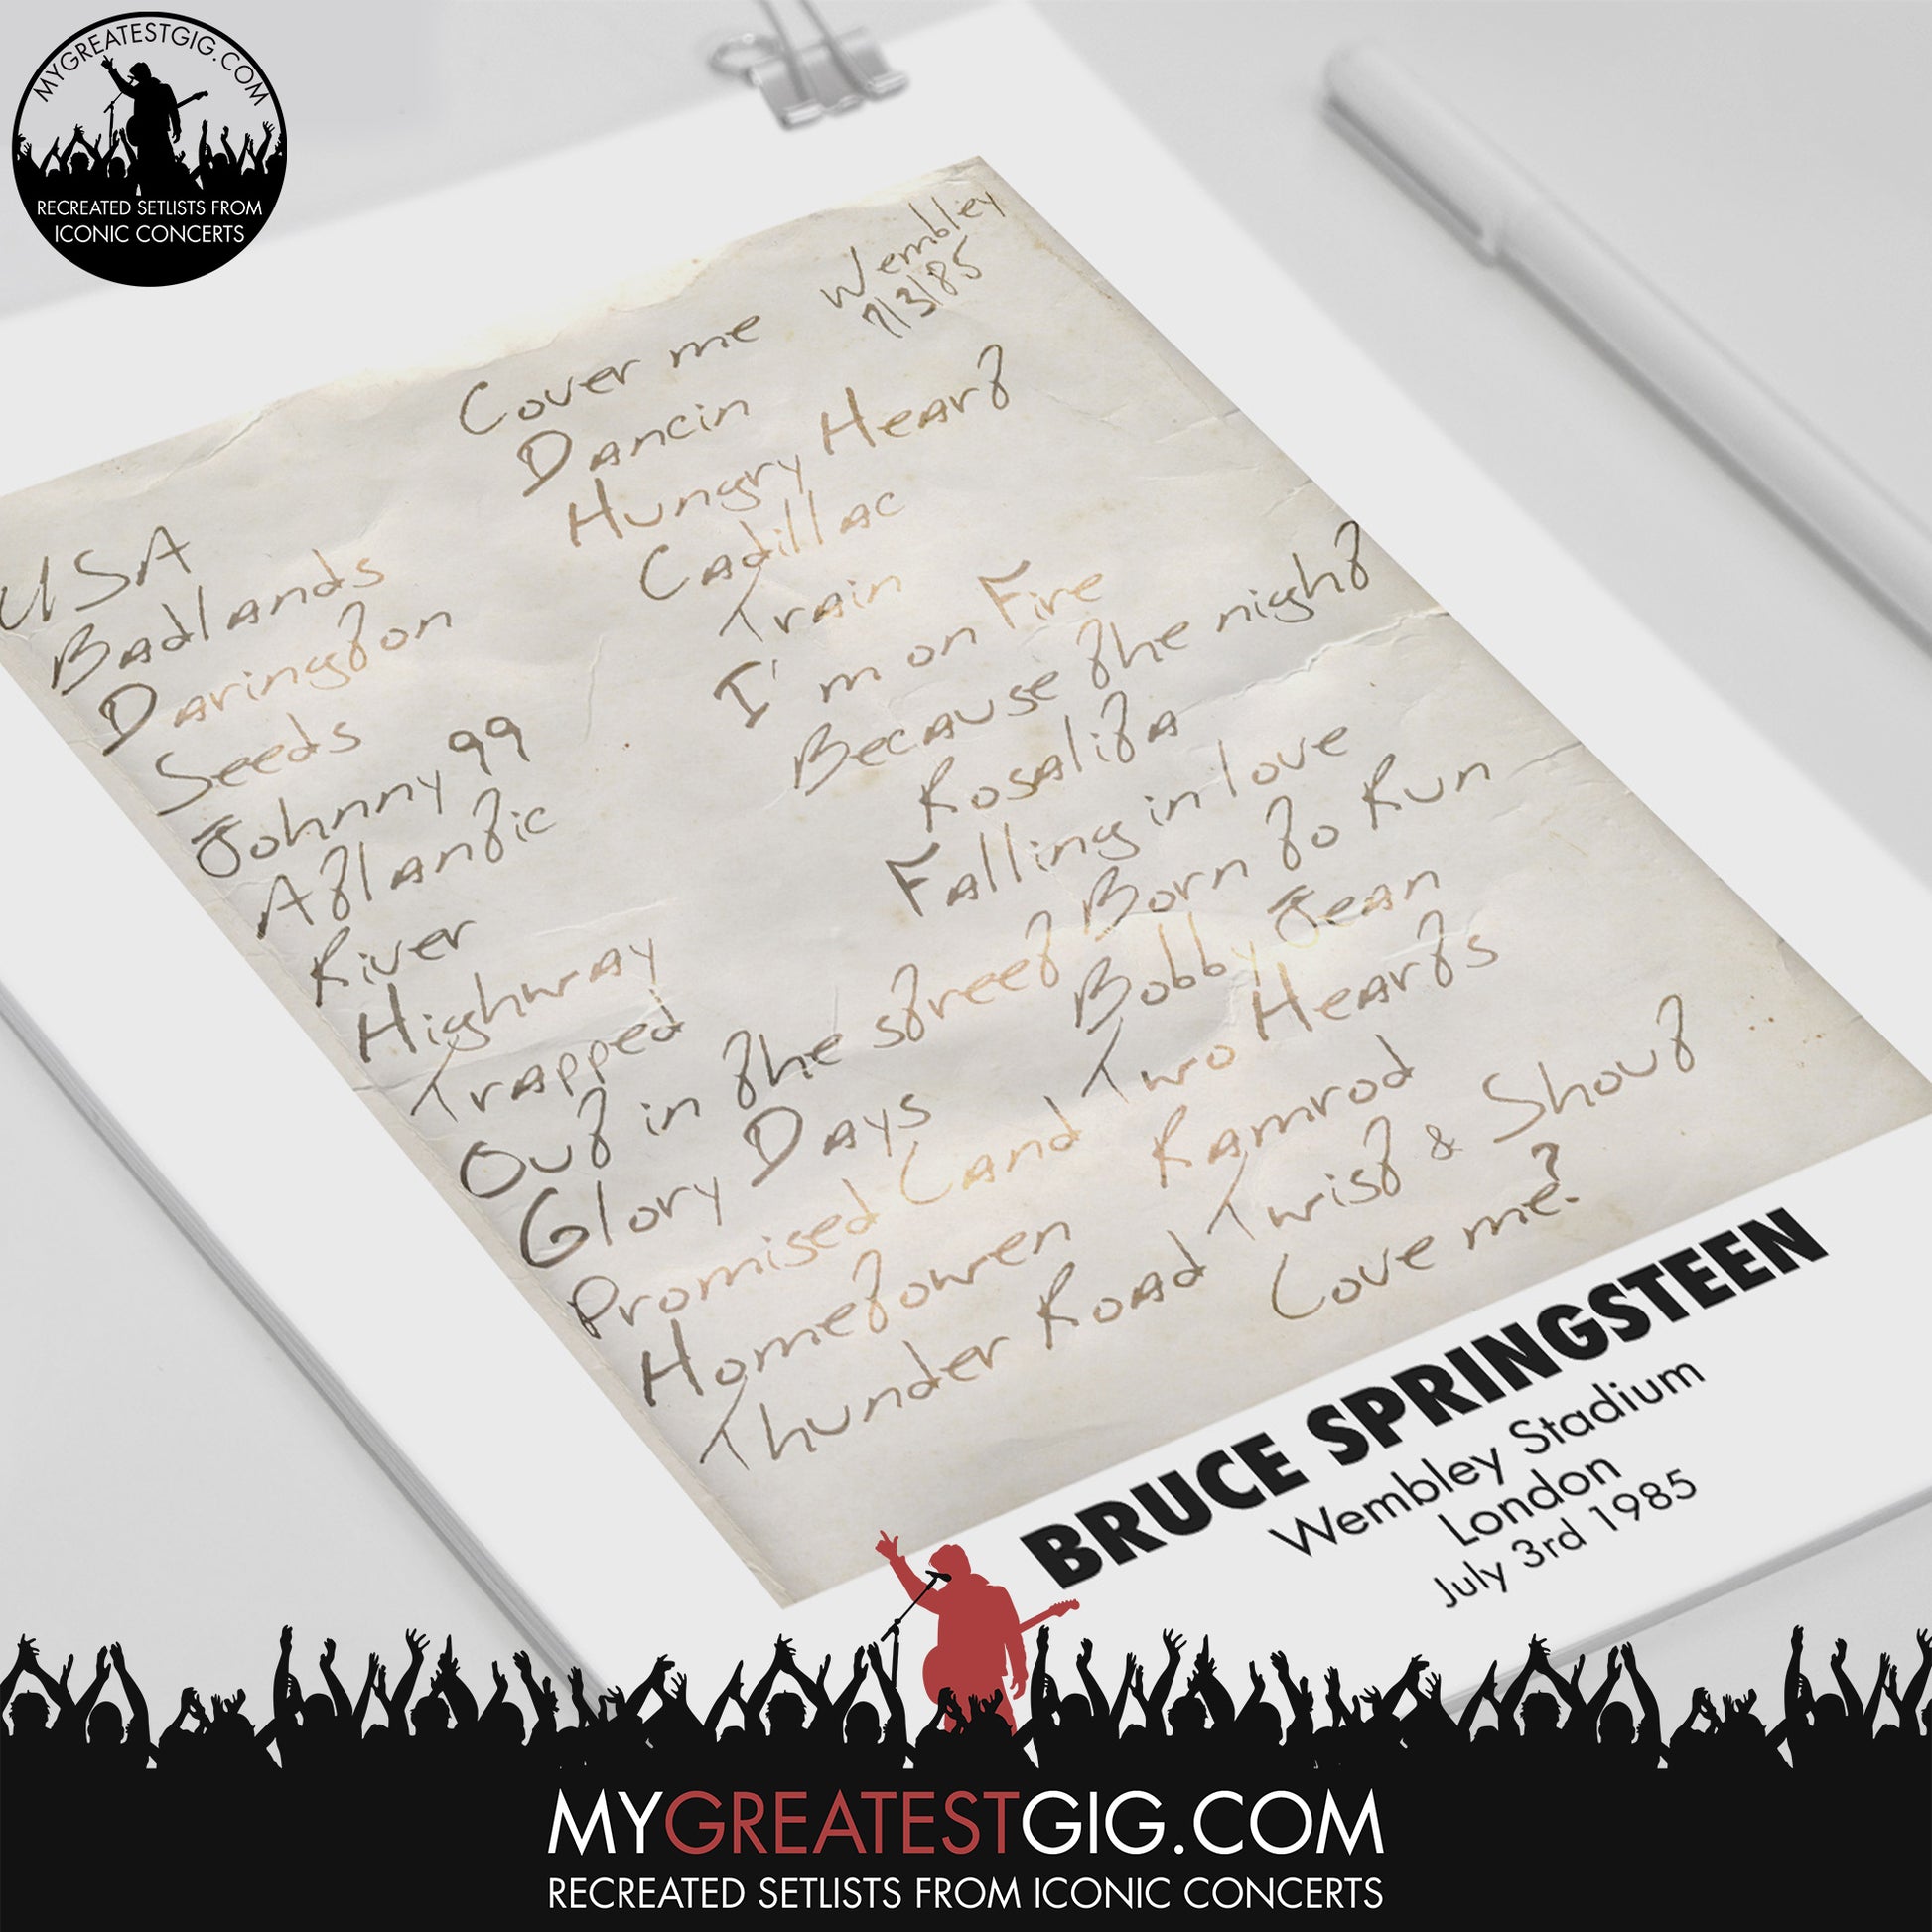 MYGREATESTGIG.COM
RECREATED SETLISTS FROM
ICONIC CONCERTS
Wembley
7/3/85
USA
Badlands
Darington
Seeds
Johnny 99
Atlantic
River
Highway
Trapped
Out in the street
Glory Days
Promised Land
Hometowen
Thunder Road
Cover me
Dancin
Hungry Heart
Cadillac
Train
I'm on Fire
Because the night
Rosalita
Falling in love
Born to Run
Bobby Jean
Two Hearts
Ramrod
Twist & Shout
Love me?
BRUCE SPRINGSTEEN
Wembley Stadium
London
July 3rd 1985
MYGREATESTGIG.COM
RECREATED SETLISTS FROM ICONIC CONCERTS